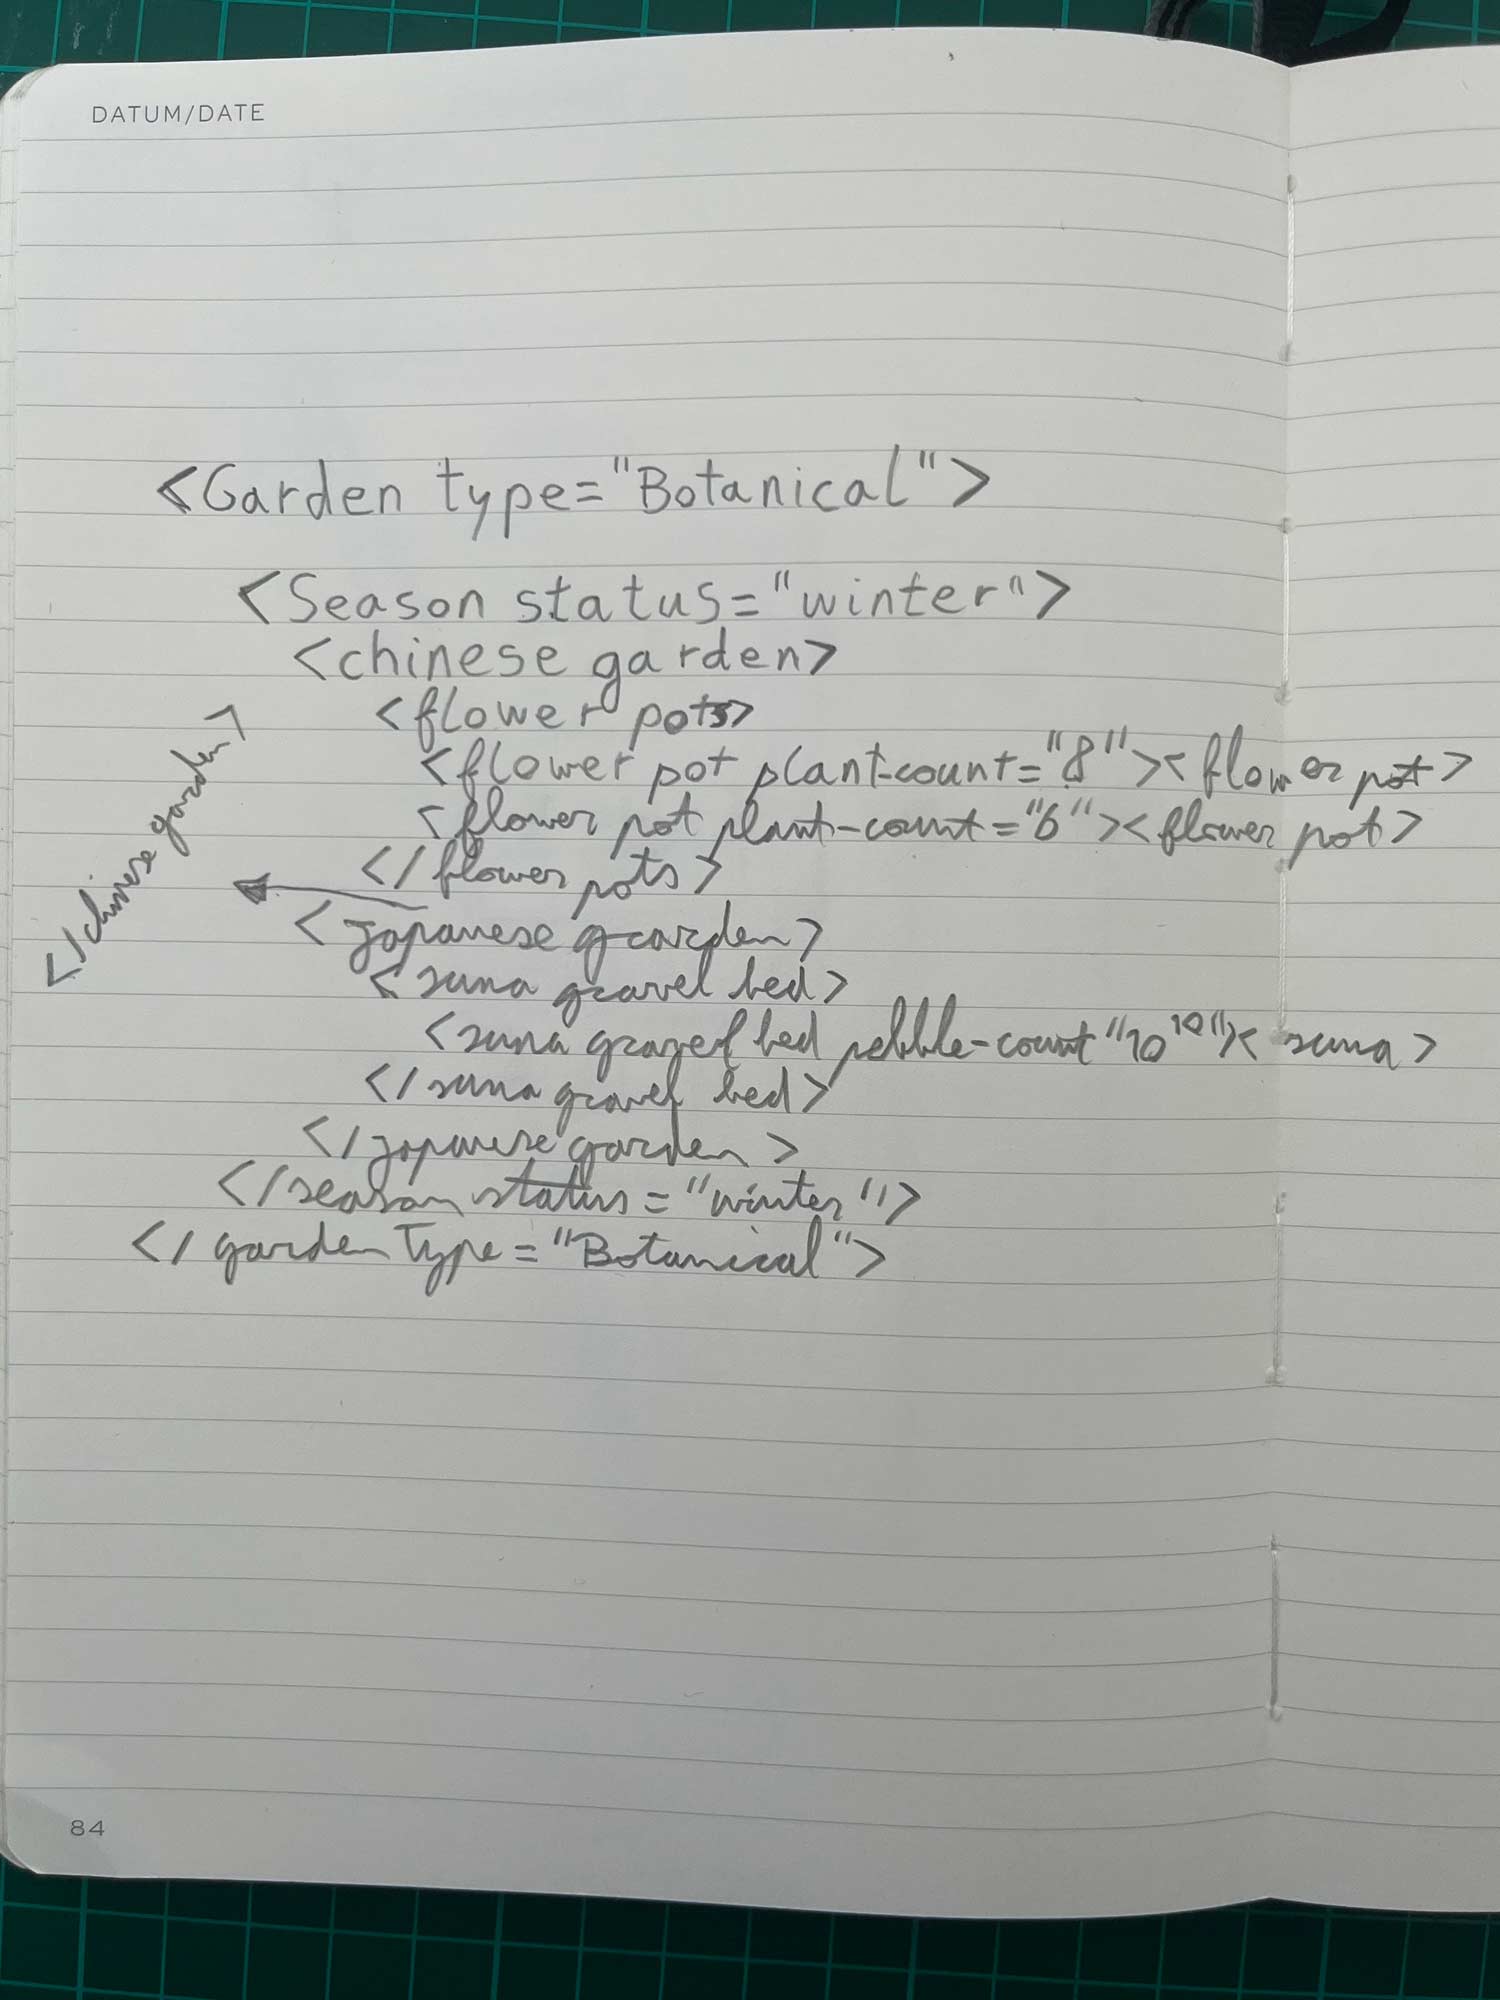 DATUM/DATE
<Garden type="Botanical">
<Season status="winter">
<chinese garden>
<flower pots>
<flower pot plant-count="8"><flower pot>
<flower pot plant-count="6"><flower pot>
</flower pots>
</chinese garden>
<japanese garden>
<suna gravel bed>
<suna gravel bed pebble-count"10¹⁰"><suna>
</suna gravel bed>
</japanese garden>
</season status="winter">
</garden Type="Botanical">
84